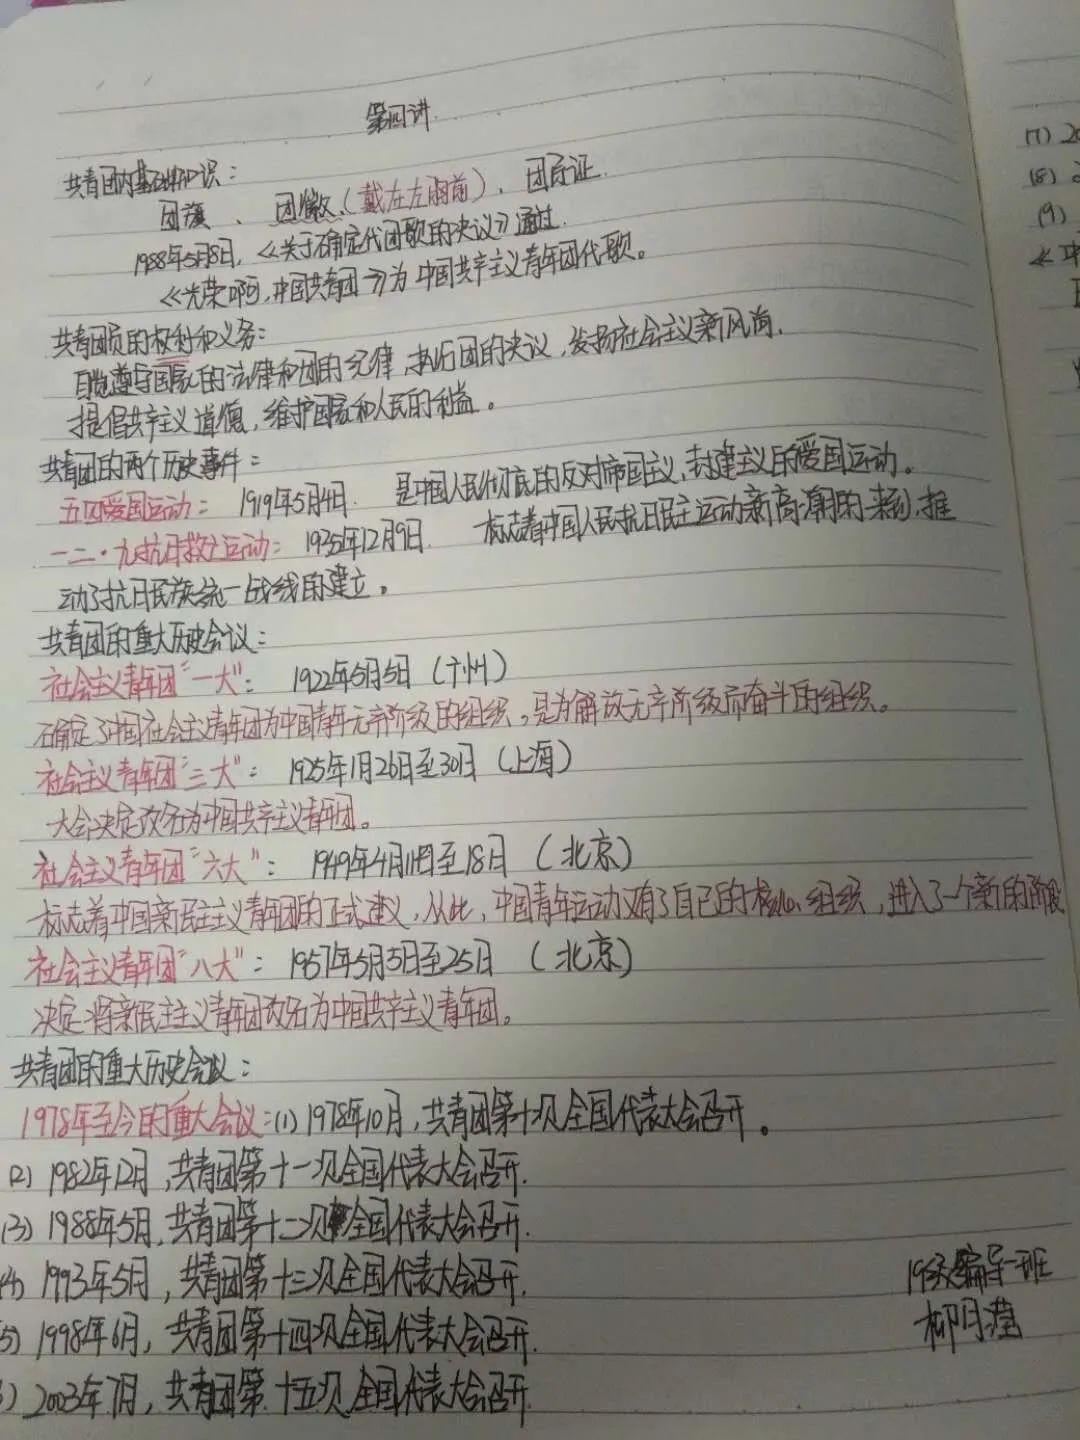 第四讲
共青团内基础知识:
团旗、团徽(戴在左胸前)、团员证.
1988年5月8日,《关于确定代团歌的决议》通过.
《光荣啊,中国共青团》为中国共产主义青年团代歌。
共青团员的权利和义务:
自觉遵守国家的法律和团的纪律,执行团的决议,发扬社会主义新风尚.
提倡共产主义道德,维护国家和人民的利益。
共青团的两个历史事件:
五四爱国运动: 1919年5月4日. 是中国人民彻底的反对帝国主义,封建主义的爱国运动。
一二·九抗日救亡运动: 1935年12月9日. 标志着中国人民抗日民主运动新高潮的来到,推
动了抗日民族统一战线的建立。
共青团的重大历史会议:
社会主义青年团"一大": 1922年5月5日(广州)
确定了中国社会主义青年团为中国青年无产阶级的组织,是为解放无产阶级而奋斗的组织。
社会主义青年团"三大": 1925年1月26日至30日(上海)
大会决定改名为中国共产主义青年团。
社会主义青年团"六大": 1949年4月11日至18日(北京)
标志着中国新民主主义青年团的正式建议,从此,中国青年运动又有了自己的核心组织,进入了一个新的阶段
社会主义青年团"八大": 1957年5月5日至25日(北京)
决定将新民主主义青年团改名为中国共产主义青年团。
共青团的重大历史会议:
1978年至今的重大会议:(1)1978年10月,共青团第十次全国代表大会召开。
(2) 1982年12月,共青团第十一次全国代表大会召开.
(3) 1988年5月,共青团第十二次全国代表大会召开.
(4) 1993年5月,共青团第十三次全国代表大会召开.
(5) 1998年6月,共青团第十四次全国代表大会召开.
) 2003年7月,共青团第十五次全国代表大会召开.
编导一班
柳月滢
(7) 20
(8)
(9)
《中